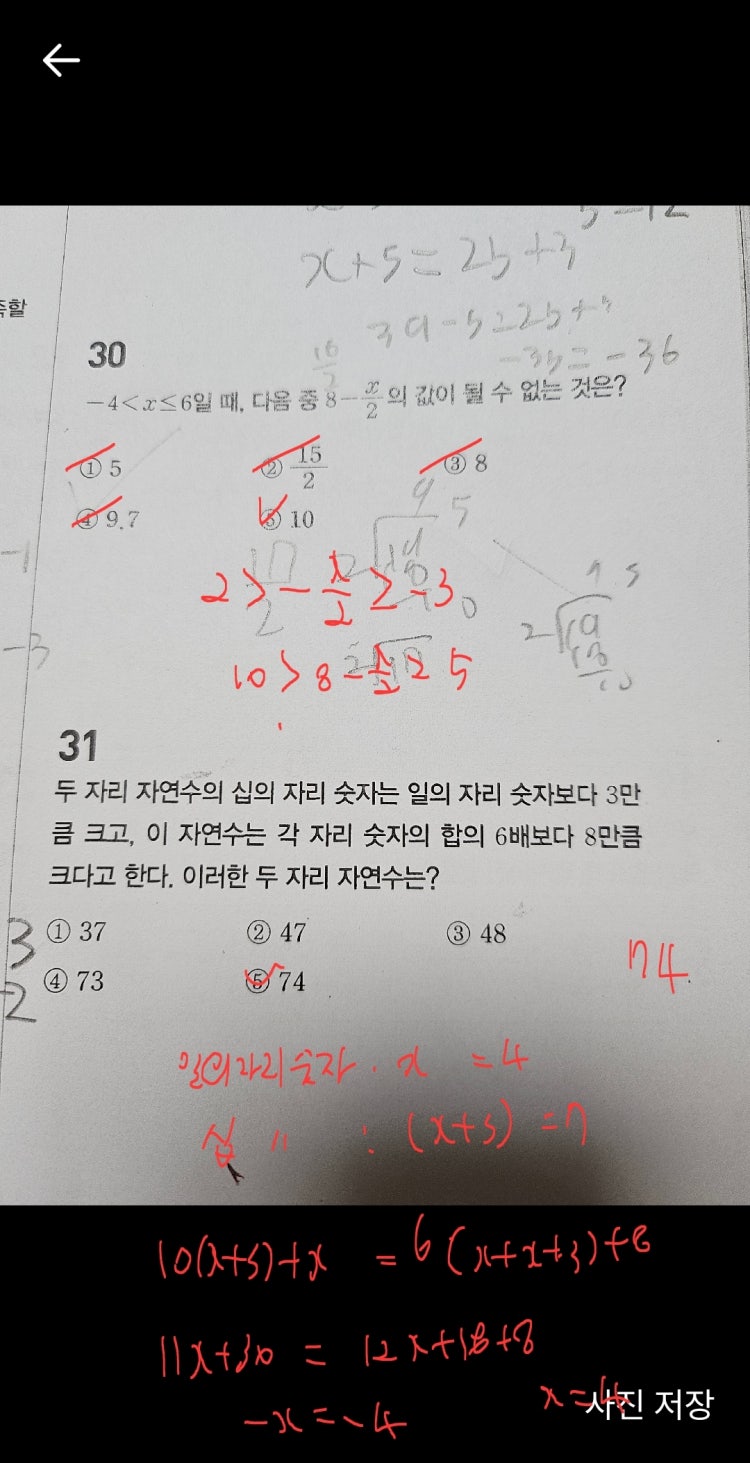 x+5=2b+3
3a-5=2b+
-3b=-36
족할
30
-4<x≤6일 때, 다음 중 8-x/2의 값이 될 수 없는 것은?
① 5 ② 15/2 ③ 8
④ 9.7 ⑤ 10
2>-x/2≥-3
10>8-x/2≥5
31
두 자리 자연수의 십의 자리 숫자는 일의 자리 숫자보다 3만
큼 크고, 이 자연수는 각 자리 숫자의 합의 6배보다 8만큼
크다고 한다. 이러한 두 자리 자연수는?
① 37 ② 47 ③ 48
④ 73 ⑤ 74
74
일의자리숫자. x =4
십 〃 : (x+3) =7
10(x+3)+x = 6(x+x+3)+8
11x+30 = 12x+18+8
-x=-4
x=4
사진 저장